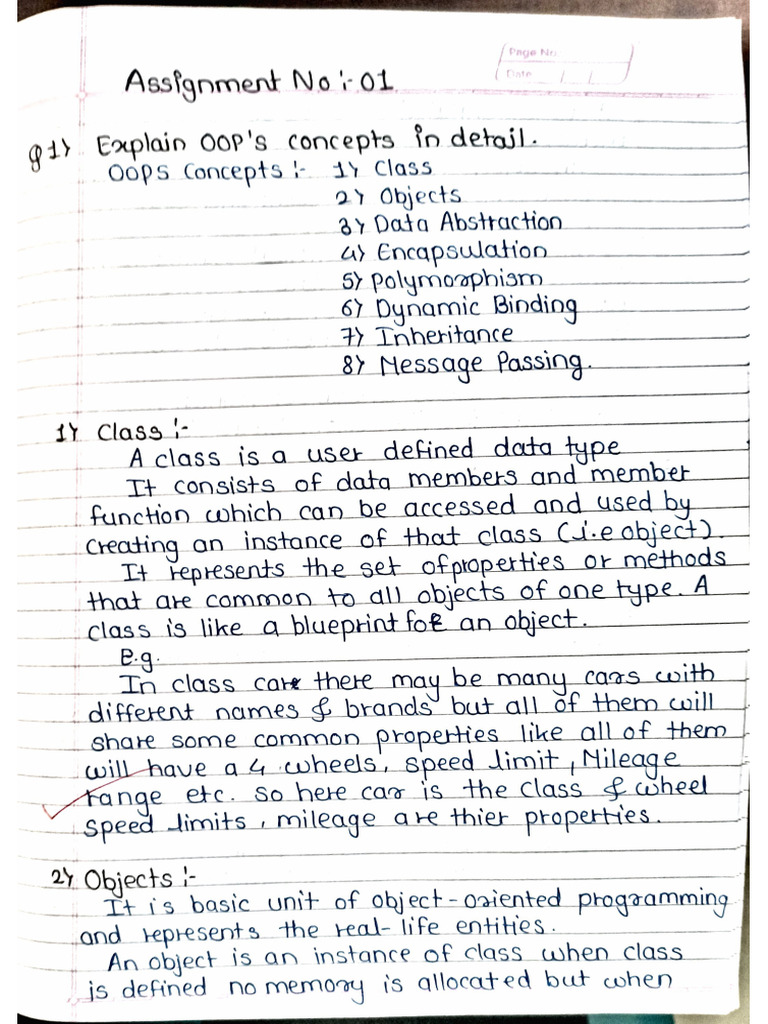 Page No.
Date / /
Assignment No :- 01
Q1) Explain OOP's concepts in detail.
OOPS Concepts :- 1) Class
2) Objects
3) Data Abstraction
4) Encapsulation
5) Polymorphism
6) Dynamic Binding
7) Inheritance
8) Message Passing.
1) Class :-
A class is a user defined data type
It consists of data members and member
function which can be accessed and used by
creating an instance of that class (i.e object).
It represents the set of properties or methods
that are common to all objects of one type. A
class is like a blueprint for an object.
E.g.
In class car there may be many cars with
different names & brands but all of them will
share some common properties like all of them
will have a 4 wheels, speed limit, Mileage
range etc. so here car is the class & wheel
speed limits, mileage are thier properties.
2) Objects :-
It is basic unit of object-oriented programming
and represents the real-life entities.
An object is an instance of class when class
is defined no memory is allocated but when